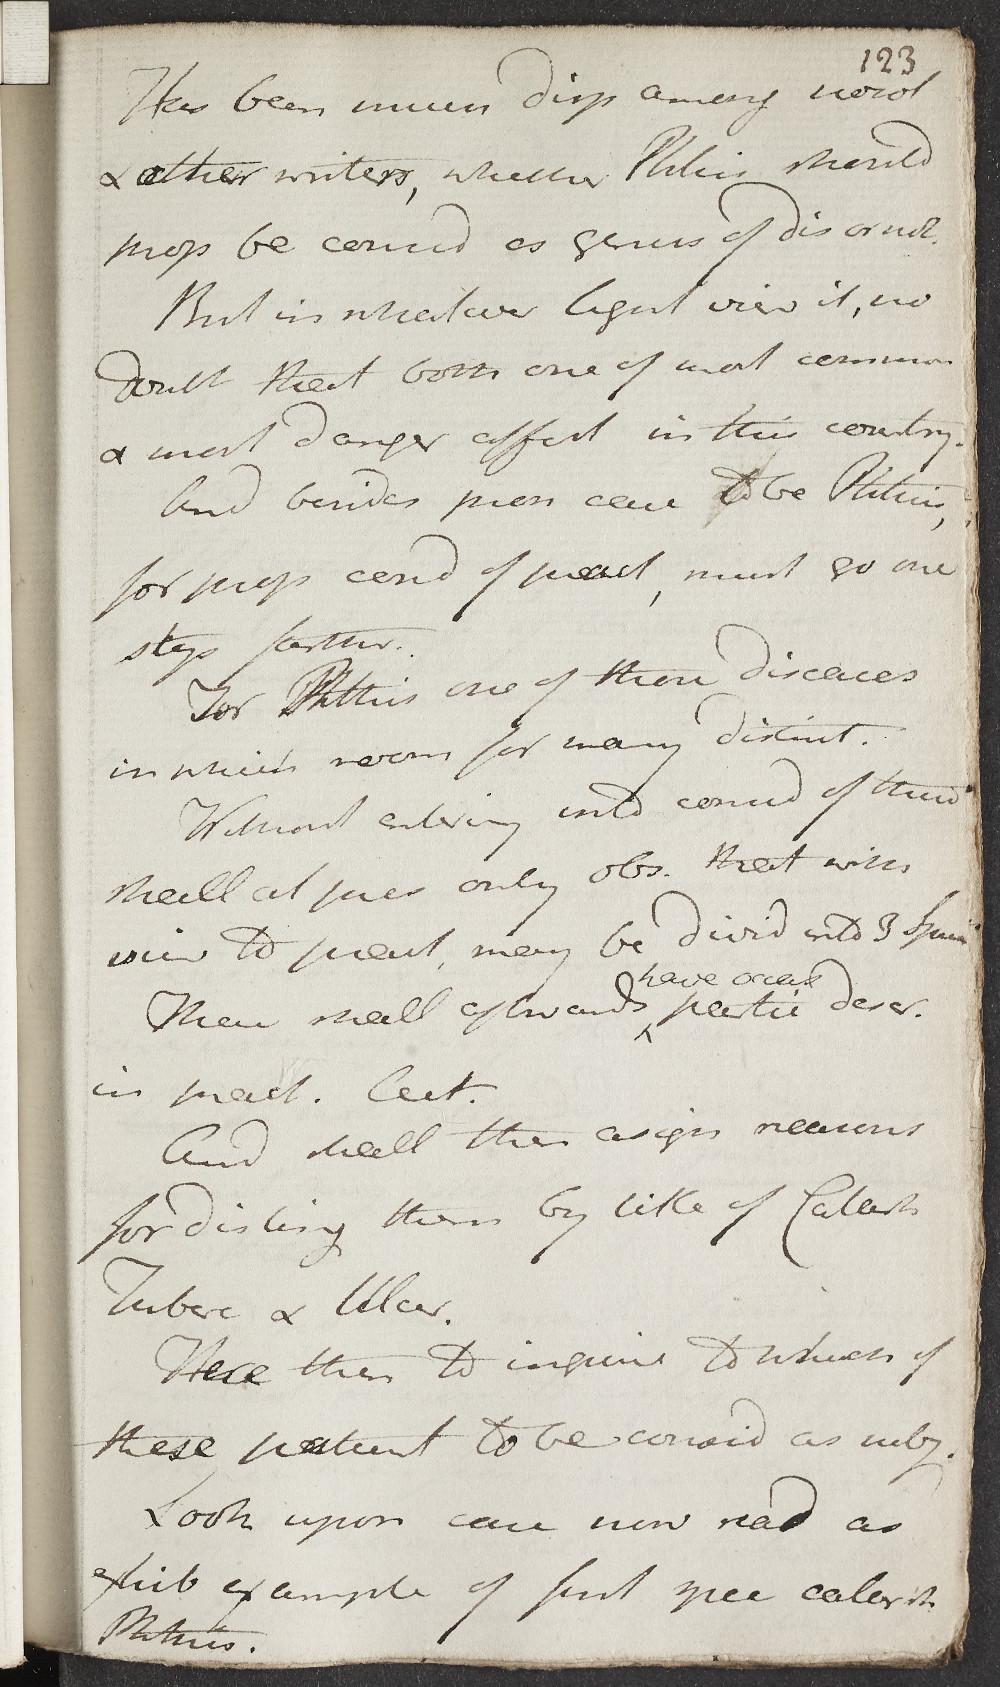 123
Has been much disp among nosol
& other writers, whether Phthisis should
prop be consid as genus of dis or not.
But in whatever light view it, no
doubt that both one of most common
& most danger affect in this country.
And besides pron case to be Phthisis,
for prop cond of pract, must go one
step farther.
For Phthisis one of those diseases
in which room for many distinct.
Without entering into consid of these
shall at pres only obs. that with
view to pract, may be divid into 3 Species
have occas
These shall afterwards ^ partic descr.
in pract. Lect.
And shall then assign reasons
for disting them by title of Catarrh
Tuberc & Ulcer.
Here then to inquire to which of
these patient to be consid as subj.
Look upon case now read as
exhib example of first spec catarrh
Phthisis.